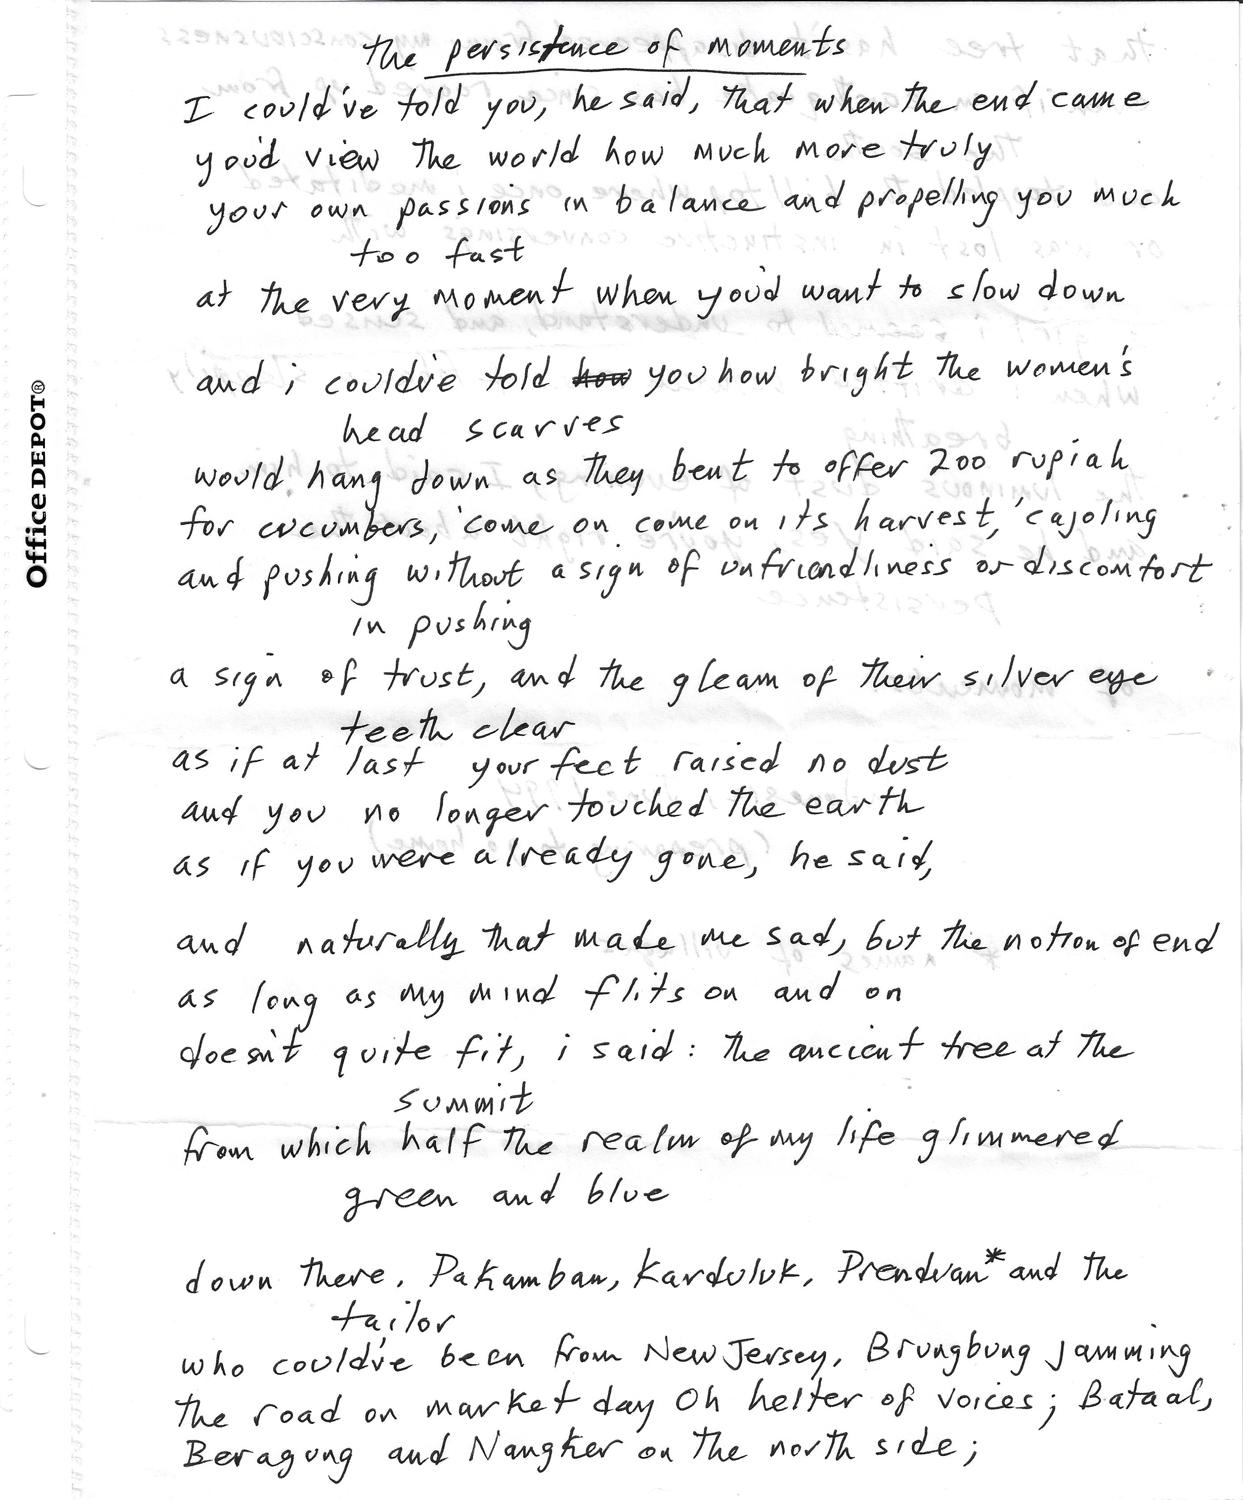 the persistence of moments
I could've told you, he said, that when the end came
you'd view the world how much more truly
your own passions in balance and propelling you much
too fast
at the very moment when you'd want to slow down
and i could've told how you how bright the women's
head scarves
would hang down as they bent to offer 200 rupiah
for cucumbers, 'come on come on its harvest,' cajoling
and pushing without a sign of unfriendliness or discomfort
in pushing
a sign of trust, and the gleam of their silver eye
teeth clear
as if at last your feet raised no dust
and you no longer touched the earth
as if you were already gone, he said,
and naturally that made me sad, but the notion of end
as long as my mind flits on and on
doesn't quite fit, i said: the ancient tree at the
summit
from which half the realm of my life glimmered
green and blue
down there. Pakamban, Karduluk, Prenduan* and the
tailor
who could've been from New Jersey, Brungbung jamming
the road on market day oh helter of voices; Bataal,
Beragung and Nangker on the north side;
Office DEPOT®